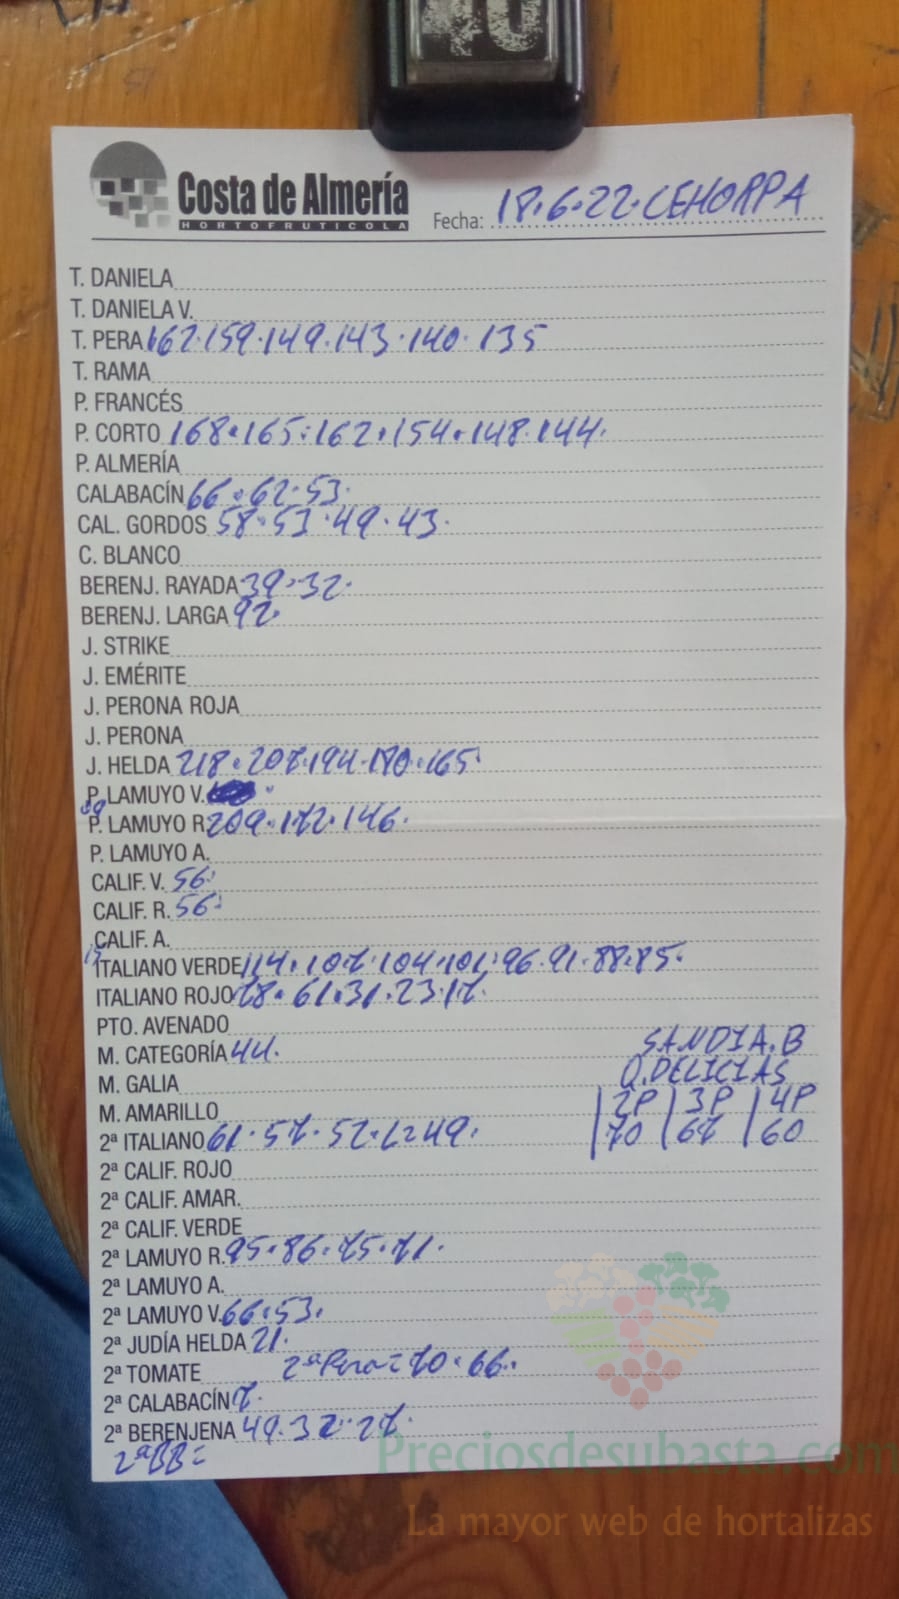 Costa de Almería
HORTOFRUTICOLA
Fecha: 18.6.22. CEHORPA
T. DANIELA
T. DANIELA V.
T. PERA 162.159.149.143.140.135
T. RAMA
P. FRANCÉS
P. CORTO 168.165.162.154.148.144.
P. ALMERÍA
CALABACÍN 66.62.53.
CAL. GORDOS 58.53.49.43.
C. BLANCO
BERENJ. RAYADA 39.32.
BERENJ. LARGA 92.
J. STRIKE
J. EMÉRITE
J. PERONA ROJA
J. PERONA
J. HELDA 218.207.194.170.165.
P. LAMUYO V.
P. LAMUYO R. 209.172.146.
P. LAMUYO A.
CALIF. V. 56.
CALIF. R. 56.
CALIF. A.
ITALIANO VERDE 114.107.104.101.96.91.88.85.
ITALIANO ROJO 78.61.31.23.17.
PTO. AVENADO
M. CATEGORÍA 44.
SANDIA.B
M. GALIA
Q.DELICIAS
M. AMARILLO
2P 3P 4P
2ª ITALIANO 61.57.52.L=49.
70 67 60
2ª CALIF. ROJO
2ª CALIF. AMAR.
2ª CALIF. VERDE
2ª LAMUYO R. 95.86.75.71.
2ª LAMUYO A.
2ª LAMUYO V. 66.53.
2ª JUDÍA HELDA 21.
2ª TOMATE 2ª Pera=70.66.
2ª CALABACÍN 7.
2ª BERENJENA 49.32.27.
2ªBB=
Preciosdesubasta.com
La mayor web de hortalizas